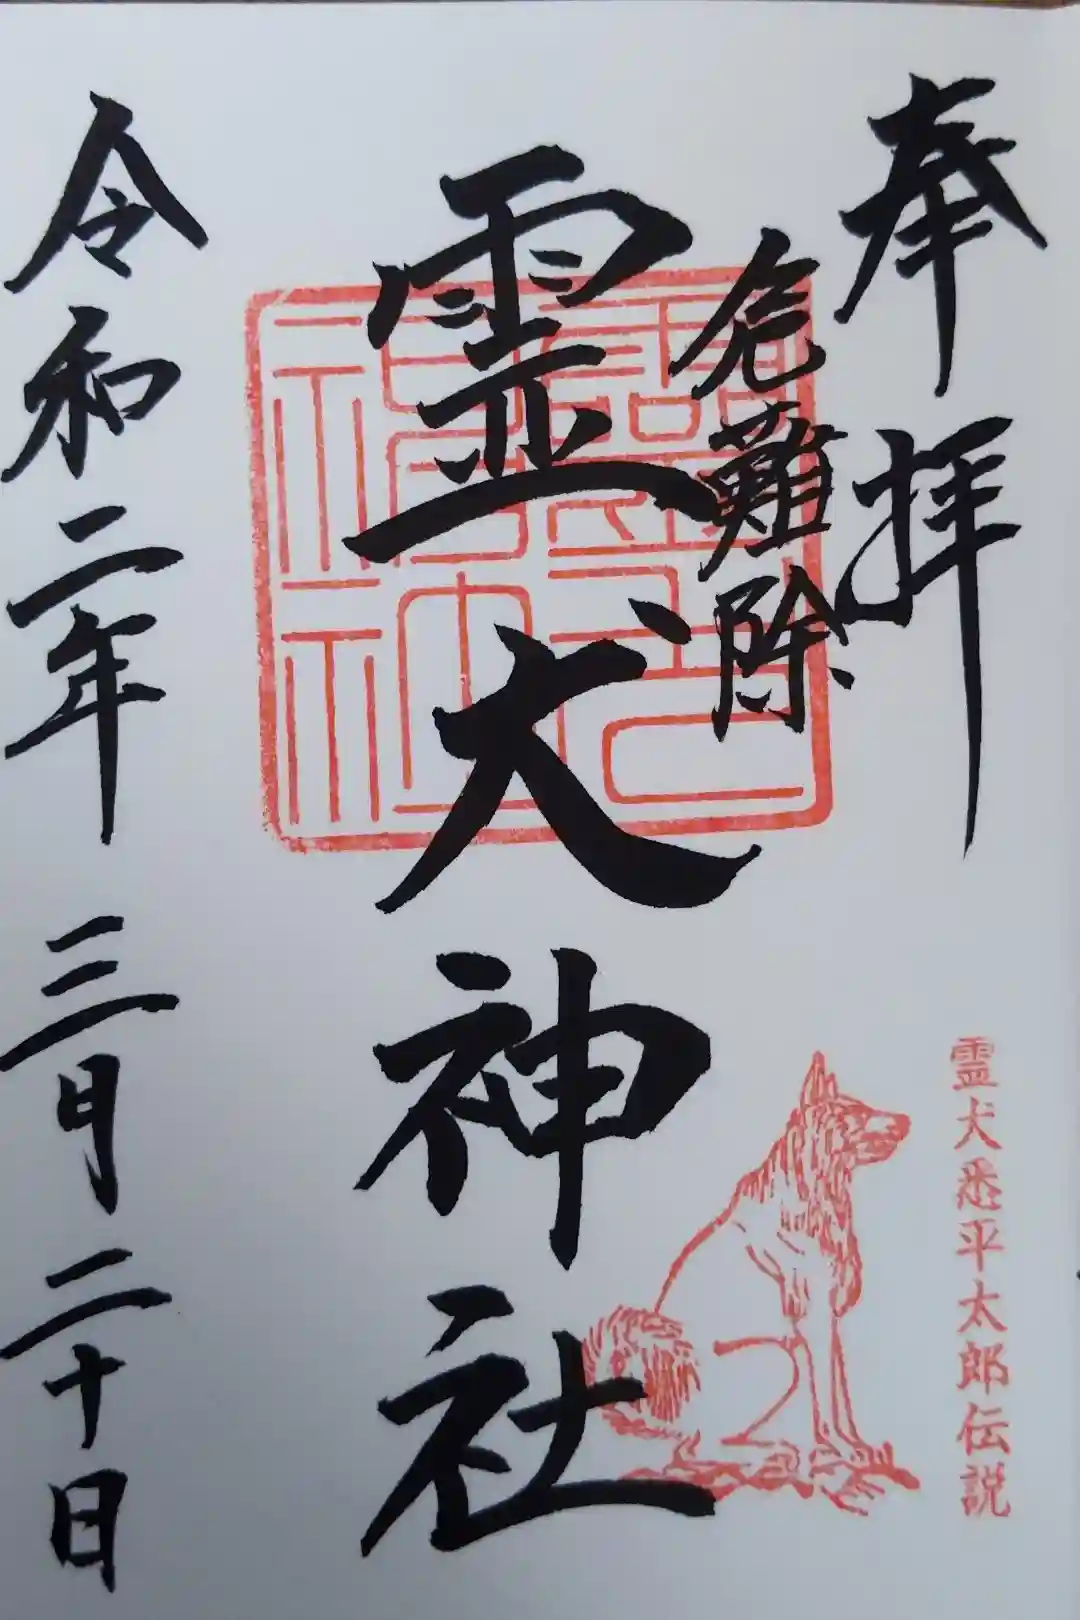 奉拝
危難除
霊犬神社
令和二年三月二十日
霊犬悉平太郎伝説